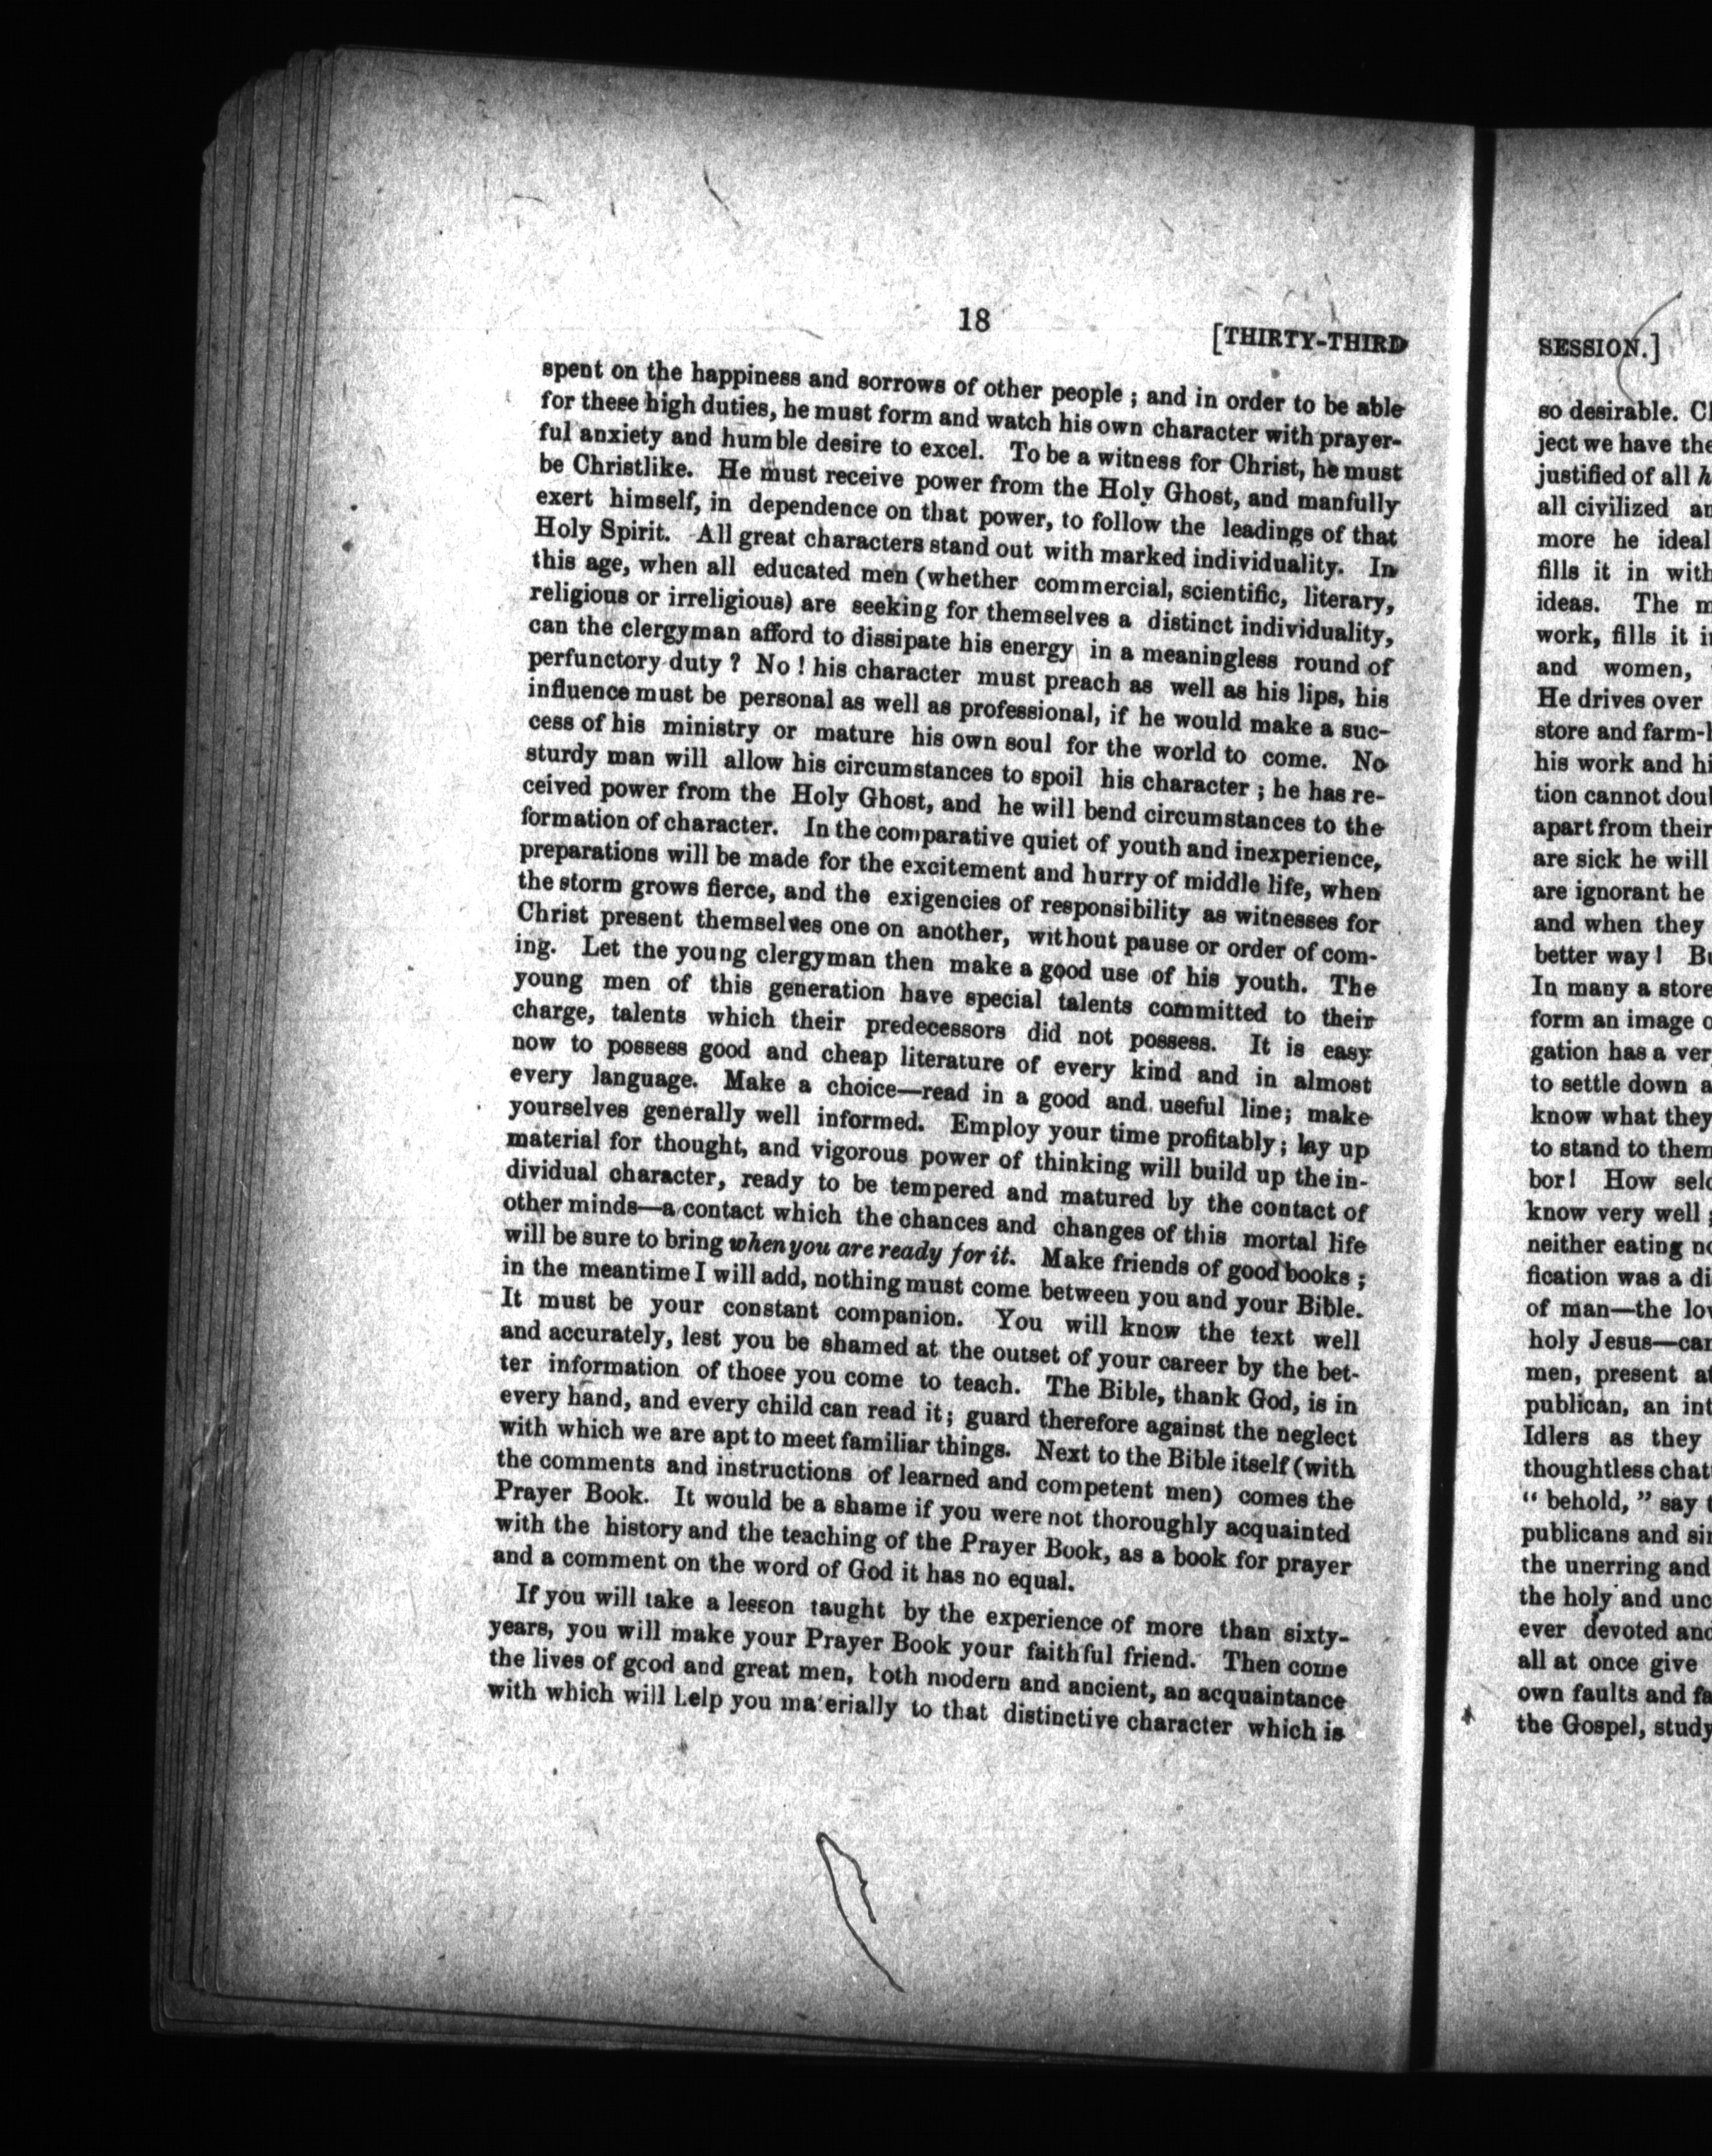 18
[THIRTY-THIRD
spent on the happiness and sorrows of other people ; and in order to be able
for these high duties, he must form and watch his own character with prayer-
ful anxiety and humble desire to excel. To be a witness for Christ, he must
be Christlike. He must receive power from the Holy Ghost, and manfully
exert himself, in dependence on that power, to follow the leadings of that
Holy Spirit. All great characters stand out with marked individuality. In
this age, when all educated men (whether commercial, scientific, literary,
religious or irreligious) are seeking for themselves a distinct individuality,
can the clergyman afford to dissipate his energy in a meaningless round of
perfunctory duty ? No ! his character must preach as well as his lips, his
influence must be personal as well as professional, if he would make a suc-
cess of his ministry or mature his own soul for the world to come. No
sturdy man will allow his circumstances to spoil his character ; he has re-
ceived power from the Holy Ghost, and he will bend circumstances to the
formation of character. In the comparative quiet of youth and inexperience,
preparations will be made for the excitement and hurry of middle life, when
the storm grows fierce, and the exigencies of responsibility as witnesses for
Christ present themselves one on another, without pause or order of com-
ing. Let the young clergyman then make a good use of his youth. The
young men of this generation have special talents committed to their
charge, talents which their predecessors did not possess. It is easy
now to possess good and cheap literature of every kind and in almost
every language. Make a choice—read in a good and useful line; make
yourselves generally well informed. Employ your time profitably; lay up
material for thought, and vigorous power of thinking will build up the in-
dividual character, ready to be tempered and matured by the contact of
other minds—a contact which the chances and changes of this mortal life
will be sure to bring when you are ready for it. Make friends of good books ;
in the meantime I will add, nothing must come between you and your Bible.
It must be your constant companion. You will know the text well
and accurately, lest you be shamed at the outset of your career by the bet-
ter information of those you come to teach. The Bible, thank God, is in
every hand, and every child can read it; guard therefore against the neglect
with which we are apt to meet familiar things. Next to the Bible itself (with
the comments and instructions of learned and competent men) comes the
Prayer Book. It would be a shame if you were not thoroughly acquainted
with the history and the teaching of the Prayer Book, as a book for prayer
and a comment on the word of God it has no equal.
If you will take a lesson taught by the experience of more than sixty-
years, you will make your Prayer Book your faithful friend. Then come
the lives of good and great men, both modern and ancient, an acquaintance
with which will help you materially to that distinctive character which is
SESSION.]
so desirable.
ject we have the
justified of all
all civilized
more he ideal
fills it in with
ideas. The
work, fills it
and women,
He drives over
store and farm-
his work and
tion cannot
apart from their
are sick he will
are ignorant he
and when they
better way !
In many a store
form an image
gation has a
to settle down
know what they
to stand to them
bor !  How
know very well ;
neither eating
fication was a
of man—the
holy Jesus—
men, present
publican, an
Idlers as they
thoughtless
" behold, " say
publicans and
the unerring and
the holy and
ever devoted
all at once give
own faults and
the Gospel, study